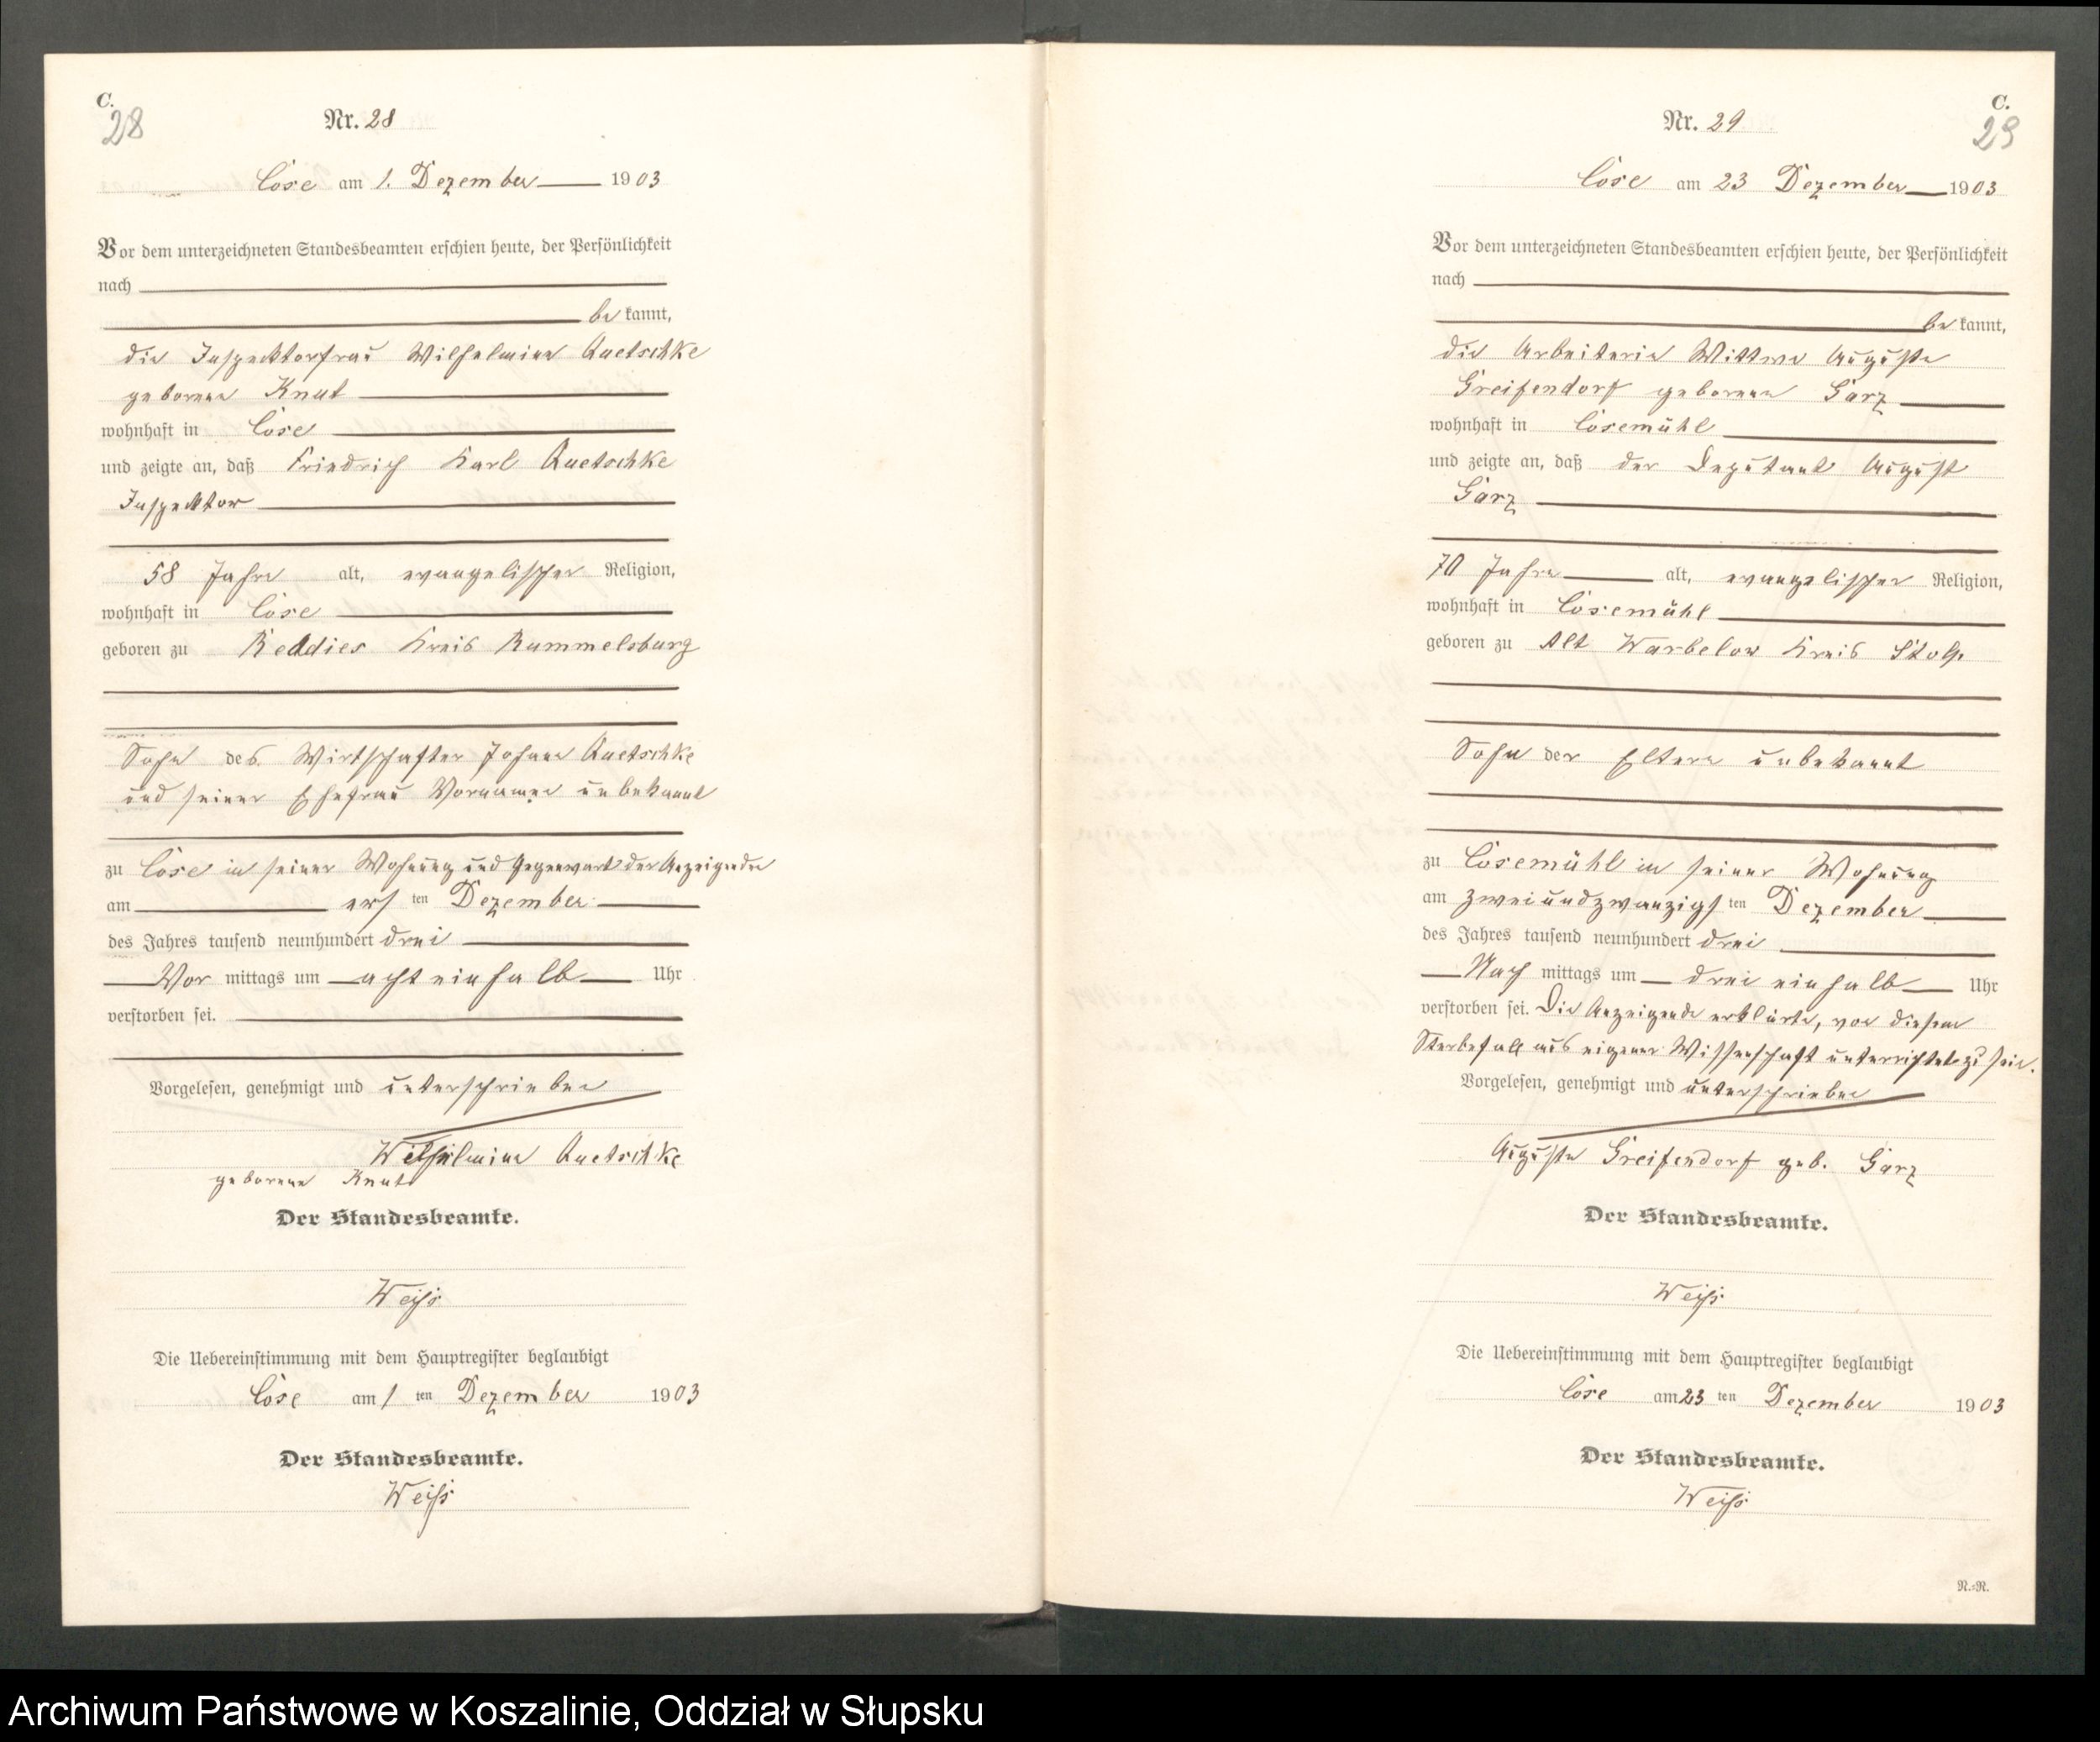 C.
28
Nr. 28
Cose am 1. Dezember 1903
Vor dem unterzeichneten Standesbeamten erschien heute, der Persönlichkeit
nach
be kannt,
die Inspektorfrau Wilhelmine Quetschke
geborene Knut
wohnhaft in Cose
und zeigte an, daß Friedrich Karl Quetschke
Inspektor
58 Jahre alt, evangelischer Religion,
wohnhaft in Cose
geboren zu Reddies Kreis Rummelsburg
Sohn des Wirtschafter Johann Quetschke
und seiner Ehefrau Vornamen unbekannt
zu Cose in seiner Wohnung und Gegenwart der Anzeigenden
am ers ten Dezember
des Jahres tausend neunhundert drei
Vor mittags um acht einhalb Uhr
verstorben sei.
Vorgelesen, genehmigt und unterschrieben
Wilhelmine Quetschke
geborene Knut
Der Standesbeamte.
Weiß
Die Uebereinstimmung mit dem Hauptregister beglaubigt
Cose am 1 ten Dezember 1903
Der Standesbeamte.
Weiß
C.
29
Nr. 29
Cose am 23 Dezember 1903
Vor dem unterzeichneten Standesbeamten erschien heute, der Persönlichkeit
nach
be kannt,
die Arbeiterin Wittwe Auguste
Greifendorf geborene Garz
wohnhaft in Cosemühl
und zeigte an, daß der Deputant August
Garz
70 Jahre alt, evangelischer Religion,
wohnhaft in Cosemühl
geboren zu Alt Warbelow Kreis Stolp
Sohn der Eltern unbekannt
zu Cosemühl in seiner Wohnung
am zweiundzwanzigs ten Dezember
des Jahres tausend neunhundert drei
Nach mittags um drei einhalb Uhr
verstorben sei. Die Anzeigende erklärte, von diesem
Sterbefall aus eigener Wissenschaft unterrichtet zu sein.
Vorgelesen, genehmigt und unterschrieben
Auguste Greifendorf geb. Garz
Der Standesbeamte.
Weiß
Die Uebereinstimmung mit dem Hauptregister beglaubigt
Cose am 23 ten Dezember 1903
Der Standesbeamte.
Weiß
N.=N.
Archiwum Państwowe w Koszalinie, Oddział w Słupsku